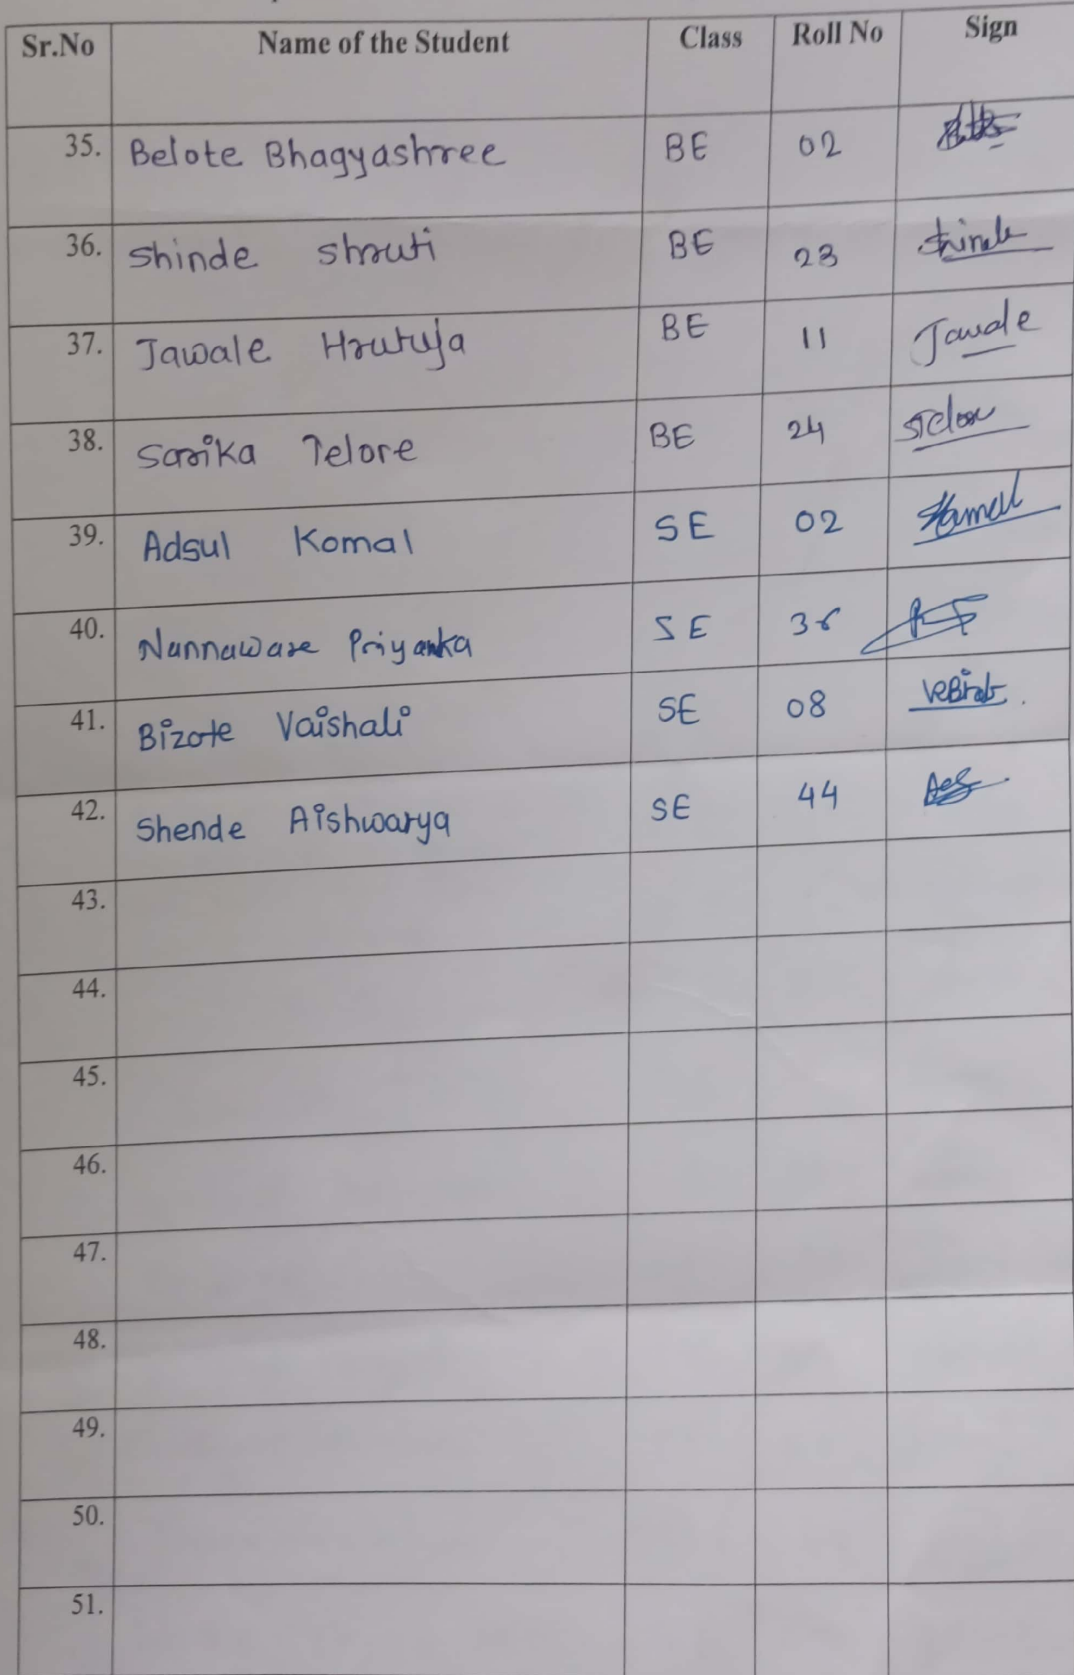 Sr.No Name of the Student Class Roll No Sign
35. Belote Bhagyashree BE 02
36. Shinde Shruti BE 23 Shinde
37. Jawale Hrutuja BE 11 Jawale
38. Sarika Telore BE 24
39. Adsul Komal SE 02 Komal
40. Nannaware Priyanka SE 36
41. Bizote Vaishali SE 08
42. Shende Aishwarya SE 44
43.
44.
45.
46.
47.
48.
49.
50.
51.